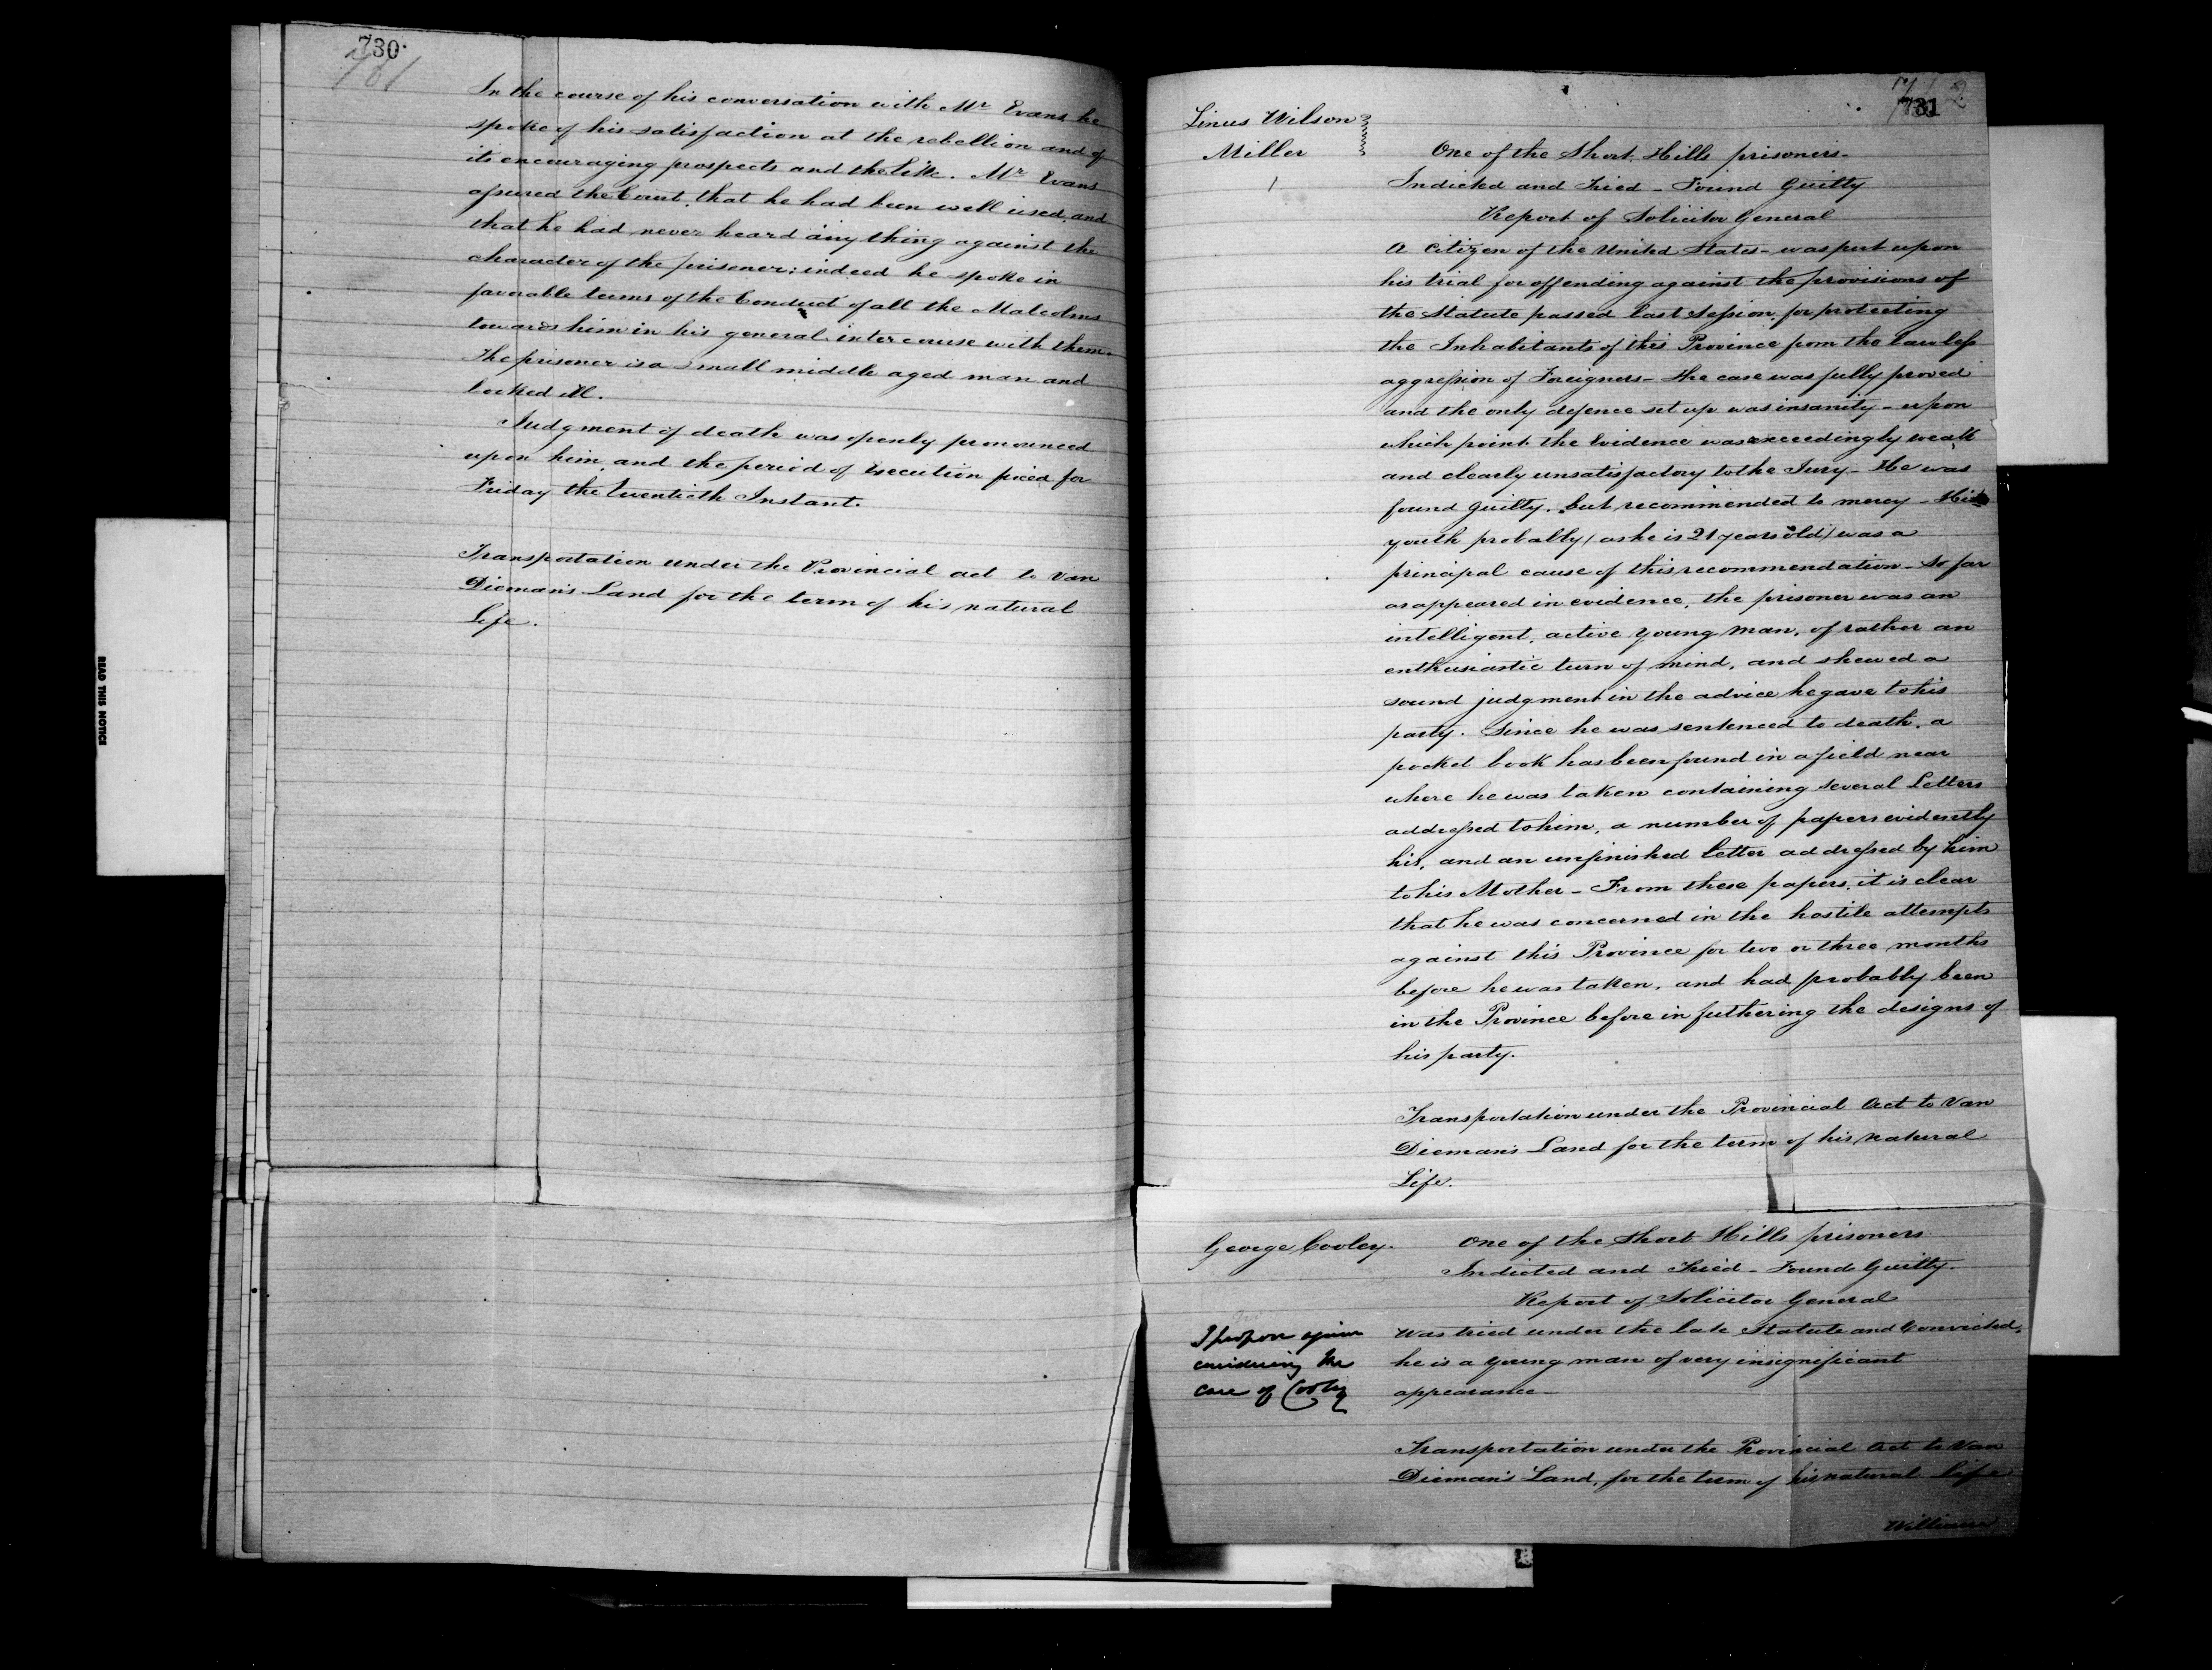 730.
781
In the course of his conversation with Mr Evans he
spoke of his satisfaction at the rebellion and of
its encouraging prospects and the like. Mr Evans
assured the Court, that he had been well used, and
that he had never heard any thing against the
character of the prisoner; indeed he spoke in
favorable terms of the Conduct of all the Malcolms
towards him in his general intercourse with them.
The prisoner is a small middle aged man and
looked ill.
Judgment of death was openly pronounced
upon him, and the period of execution fixed for
Friday the twentieth Instant.
Transportation under the Provincial act to Van
Dieman's Land for the term of his natural
Life.
READ THIS NOTICE
731
Linus Wilson
Miller
One of the Short Hills prisoners-
Indicted and Tried - Found Guilty
Report of Solicitor General
A Citizen of the United States - was put upon
his trial for offending against the provisions of
the Statute passed last Session, for protecting
the Inhabitants of this Province from the lawless
aggression of Foreigners - the case was fully proved
and the only defence set up was insanity - upon
which point the Evidence was exceedingly weak
and clearly unsatisfactory to the Jury - He was
found guilty, but recommended to mercy - His
youth probably (as he is 21 years old) was a
principal cause of this recommendation - So far
as appeared in evidence, the prisoner was an
intelligent, active young man, of rather an
enthusiastic turn of mind, and shewed a
sound judgment in the advice he gave to his
party. Since he was sentenced to death, a
pocket book has been found in a field near
where he was taken containing several Letters
addressed to him, a number of papers evidently
his, and an unfinished letter addressed by him
to his Mother - From these papers, it is clear
that he was concerned in the hostile attempts
against this Province for two or three months
before he was taken, and had probably been
in the Province before in futhering the designs of
his party.
Transportation under the Provincial Act to Van
Dieman's Land for the term of his natural
Life.
George Cooley.
One of the Short Hills prisoners
Indicted and Tried - Found Guilty.
Report of Solicitor General
Was tried under the late Statute and Convicted,
he is a young man of very insignificant
appearance-
I propose again
considering the
case of Cooley
Transportation under the Provincial Act to Van
Dieman's Land, for the term of his natural life
William